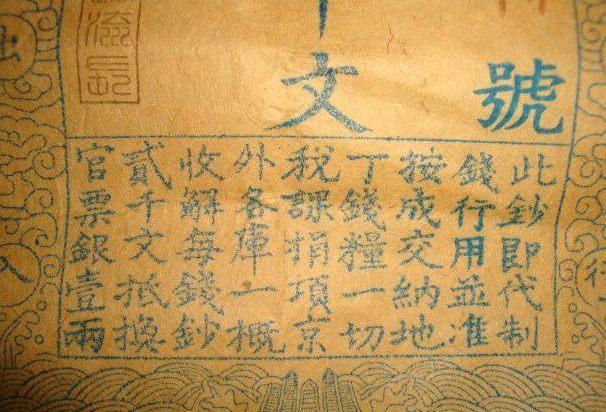 號
文
此鈔即代制
錢行用並准
按成交納地
丁錢糧一切
稅課捐項京
外各庫一概
收解每錢鈔
貳千文抵換
官票銀壹兩
行